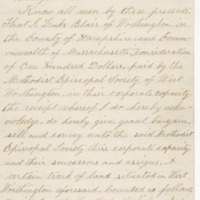 Know all men by these presents
That I, Luke Blair of Worthington, in
the County of Hampshire and Com-
monwealth of Massachusetts, Consideration
of One Hundred Dollars, paid by the
Methodist Episcopal Society of West
Worthington, in their corporate capacity
the receipt whereof I do hereby acknow-
ledge, do hereby give grant bargain,
sell and convey unto the said Methodist
Episcopal Society their corporate capacity
and their successors and assigns, A
certain tract of land, situated in West
Worthington aforesaid, bounded as follows